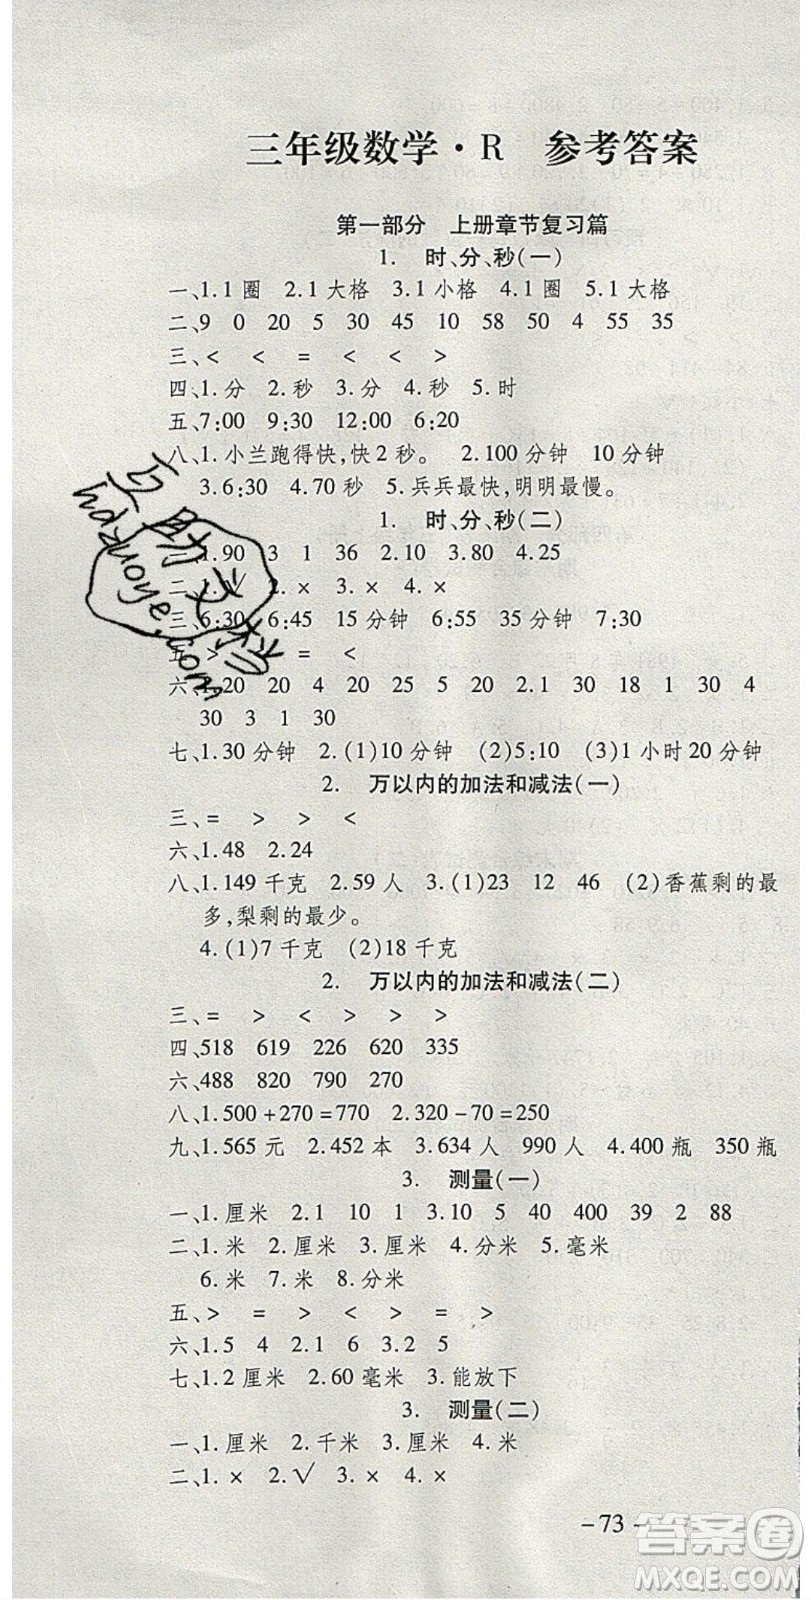 三年级数学·R 参考答案
第一部分 上册章节复习篇
1. 时、分、秒(一)
一、1.1圈 2.1大格 3.1小格 4.1圈 5.1大格
二、9 0 20 5 30 45 10 58 50 4 55 35
三、< < = < < >
四、1.分 2.秒 3.分 4.秒 5.时
五、7:00 9:30 12:00 6:20
八、1.小兰跑得快,快2秒。 2.100分钟 10分钟
3.6:30 4.70秒 5.兵兵最快,明明最慢。
1. 时、分、秒(二)
一、1.90 3 1 36 2.10 3.80 4.25
二、1.√ 2.× 3.× 4.×
三、6:30 6:45 15分钟 6:55 35分钟 7:30
五、> > = <
六、1.20 20 4 20 25 5 20 2.1 30 18 1 30 4
30 3 1 30
七、1.30分钟 2.(1)10分钟 (2)5:10 (3)1小时20分钟
2. 万以内的加法和减法(一)
三、= > > <
六、1.48 2.24
八、1.149千克 2.59人 3.(1)23 12 46 (2)香蕉剩的最
多,梨剩的最少。
4.(1)7千克 (2)18千克
2. 万以内的加法和减法(二)
三、= > < > > >
四、518 619 226 620 335
六、488 820 790 660
八、1.500+270=770 2.320-70=250
九、1.565元 2.452本 3.634人 990人 4.400瓶 350瓶
3. 测量(一)
一、1.厘米 2.1 10 1 3.10 5 40 400 39 2 88
二、1.米 2.厘米 3.米 4.分米 5.毫米
6.米 7.米 8.分米
五、> = > < > = >
六、1.5 4 2.1 6 3.2 5
七、1.2厘米 2.60毫米 3.能放下
3. 测量(二)
一、1.厘米 2.千米 3.厘米 4.米
二、1.× 2.√ 3.× 4.×
- 73 -
互助文档
hdzuoye.com
答案圈
MXQE.COM